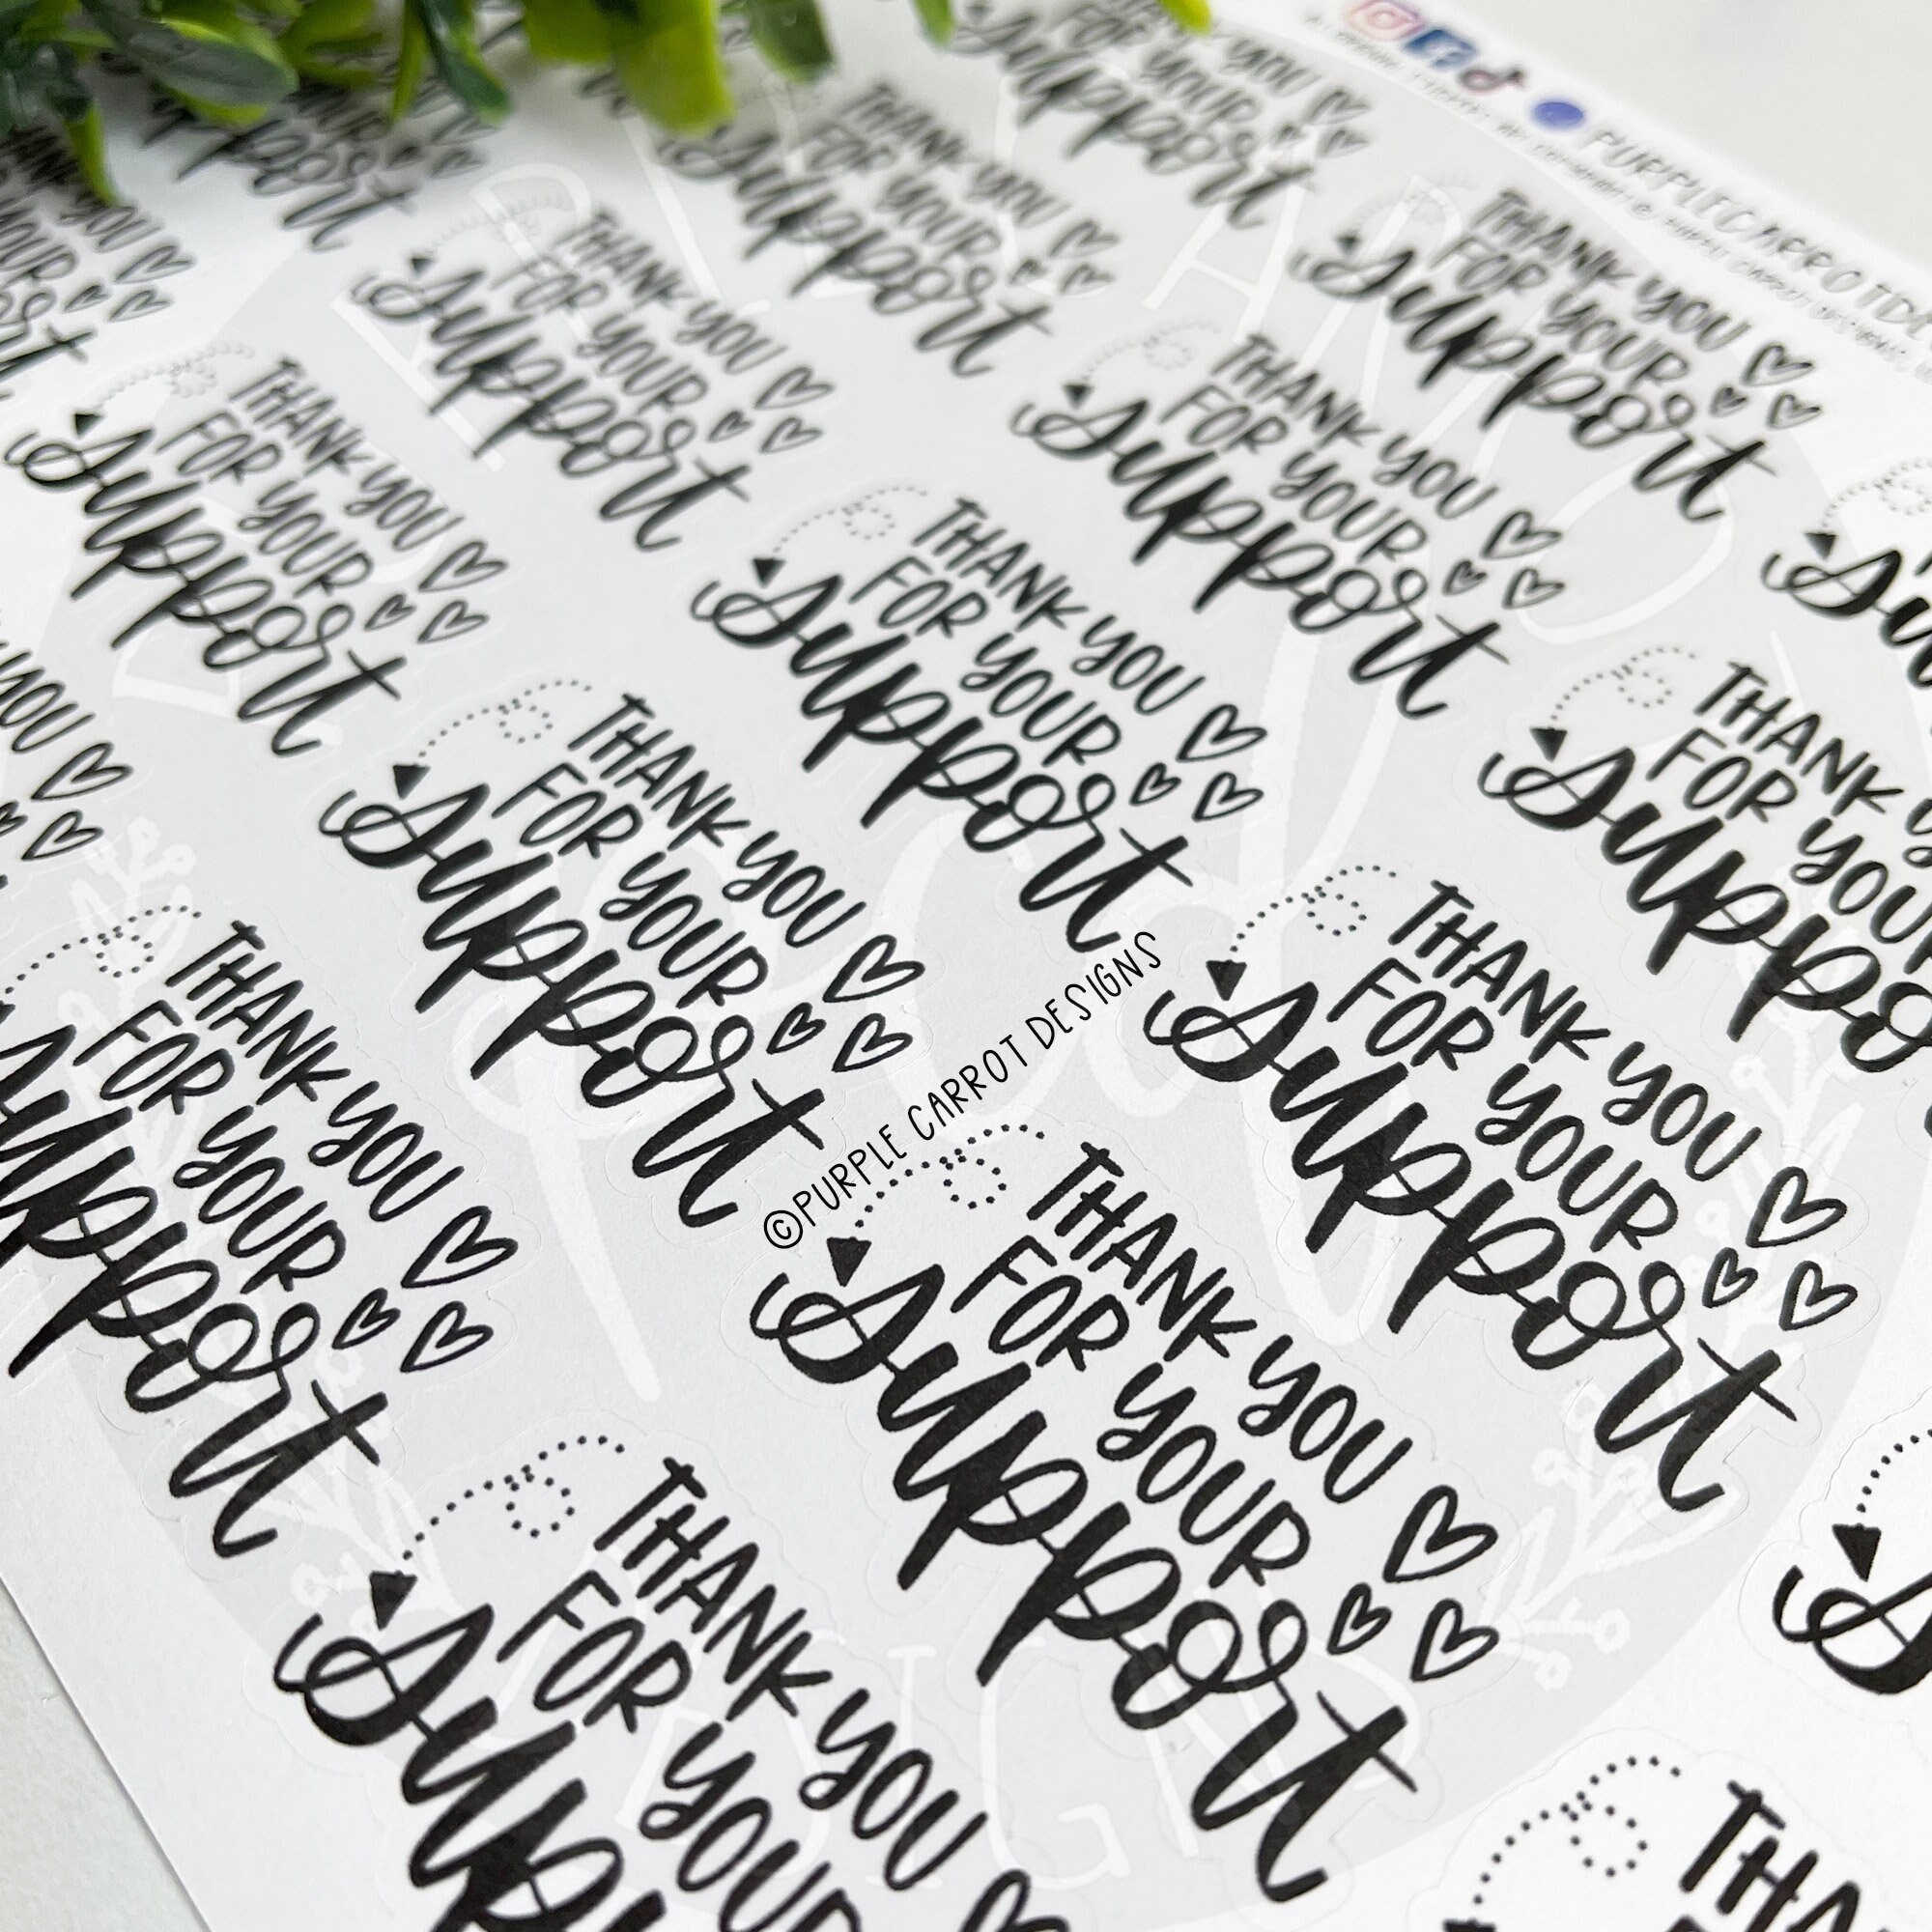 PURPLECARROTDE
THANK YOU
FOR YOUR
support
THANK YOU
FOR YOUR
support
THANK YOU
FOR YOUR
support
THANK YOU
FOR YOUR
support
THANK YOU
FOR YOUR
support
THANK YOU
FOR YOUR
support
THANK YOU
FOR YOUR
support
THANK YOU
FOR YOUR
support
THANK YOU
FOR YOUR
support
©PURPLE CARROT DESIGNS
THANK YOU
FOR YOUR
support
THANK YOU
FOR YOUR
support
THANK YOU
FOR YOUR
support
THANK YOU
FOR YOUR